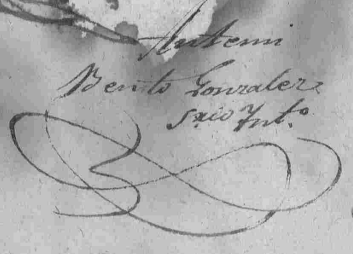 Antemi
Benito Gonzalez
Srio Int.º